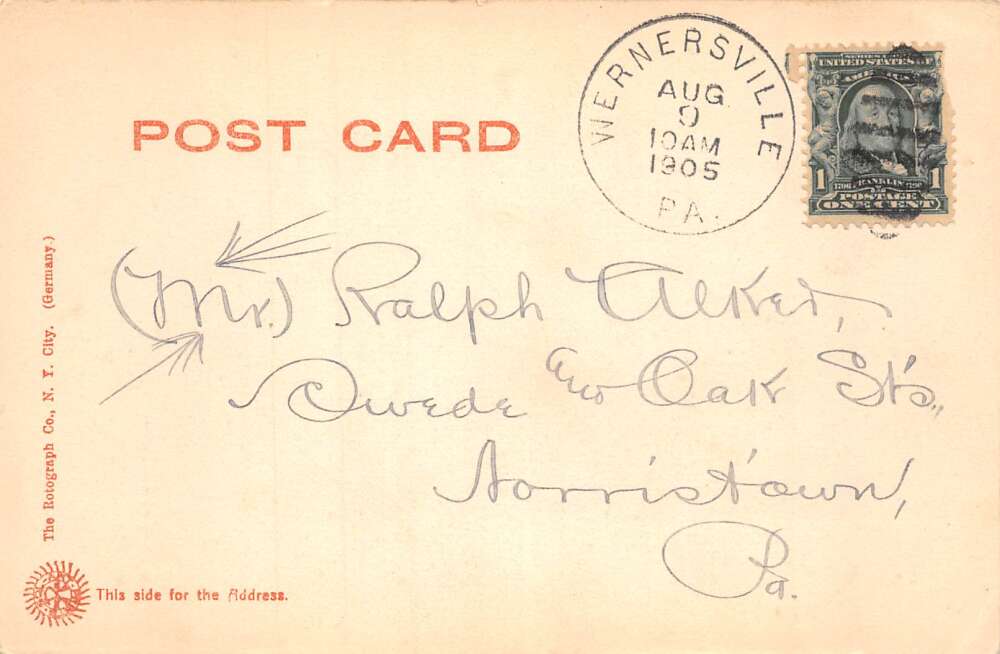 WERNERSVILLE
AUG
9
10AM
1905
PA.
SERIES 1902
UNITED STATES OF
AMERICA
1706 FRANKLIN 1790
1 POSTAGE 1
ONE CENT
POST CARD
(Mr.) Ralph Alker,
Swede and Oak Sts.,
Norristown,
Pa.
The Rotograph Co., N. Y. City. (Germany.)
This side for the Address.